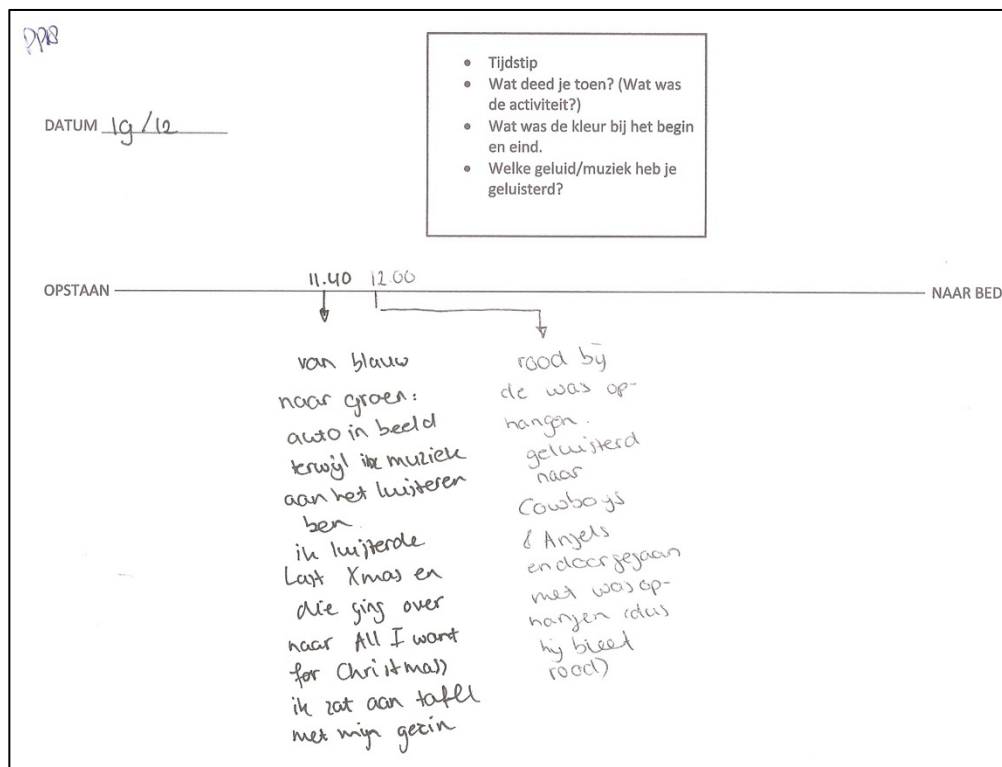 PPN8
• Tijdstip
• Wat deed je toen? (Wat was
de activiteit?)
• Wat was de kleur bij het begin
en eind.
• Welke geluid/muziek heb je
geluisterd?
DATUM 19/12
OPSTAAN
11.40 12.00
NAAR BED
van blauw
naar groen:
auto in beeld
terwijl ik muziek
aan het luisteren
ben.
ik luisterde
Last Xmas en
die ging over
naar All I want
for Christmas)
ik zat aan tafel
met mijn gezin
rood bij
de was op-
hangen.
geluisterd
naar
Cowboys
& Angels
en doorgegaan
met was op-
hangen (dus
hij bleef
rood)